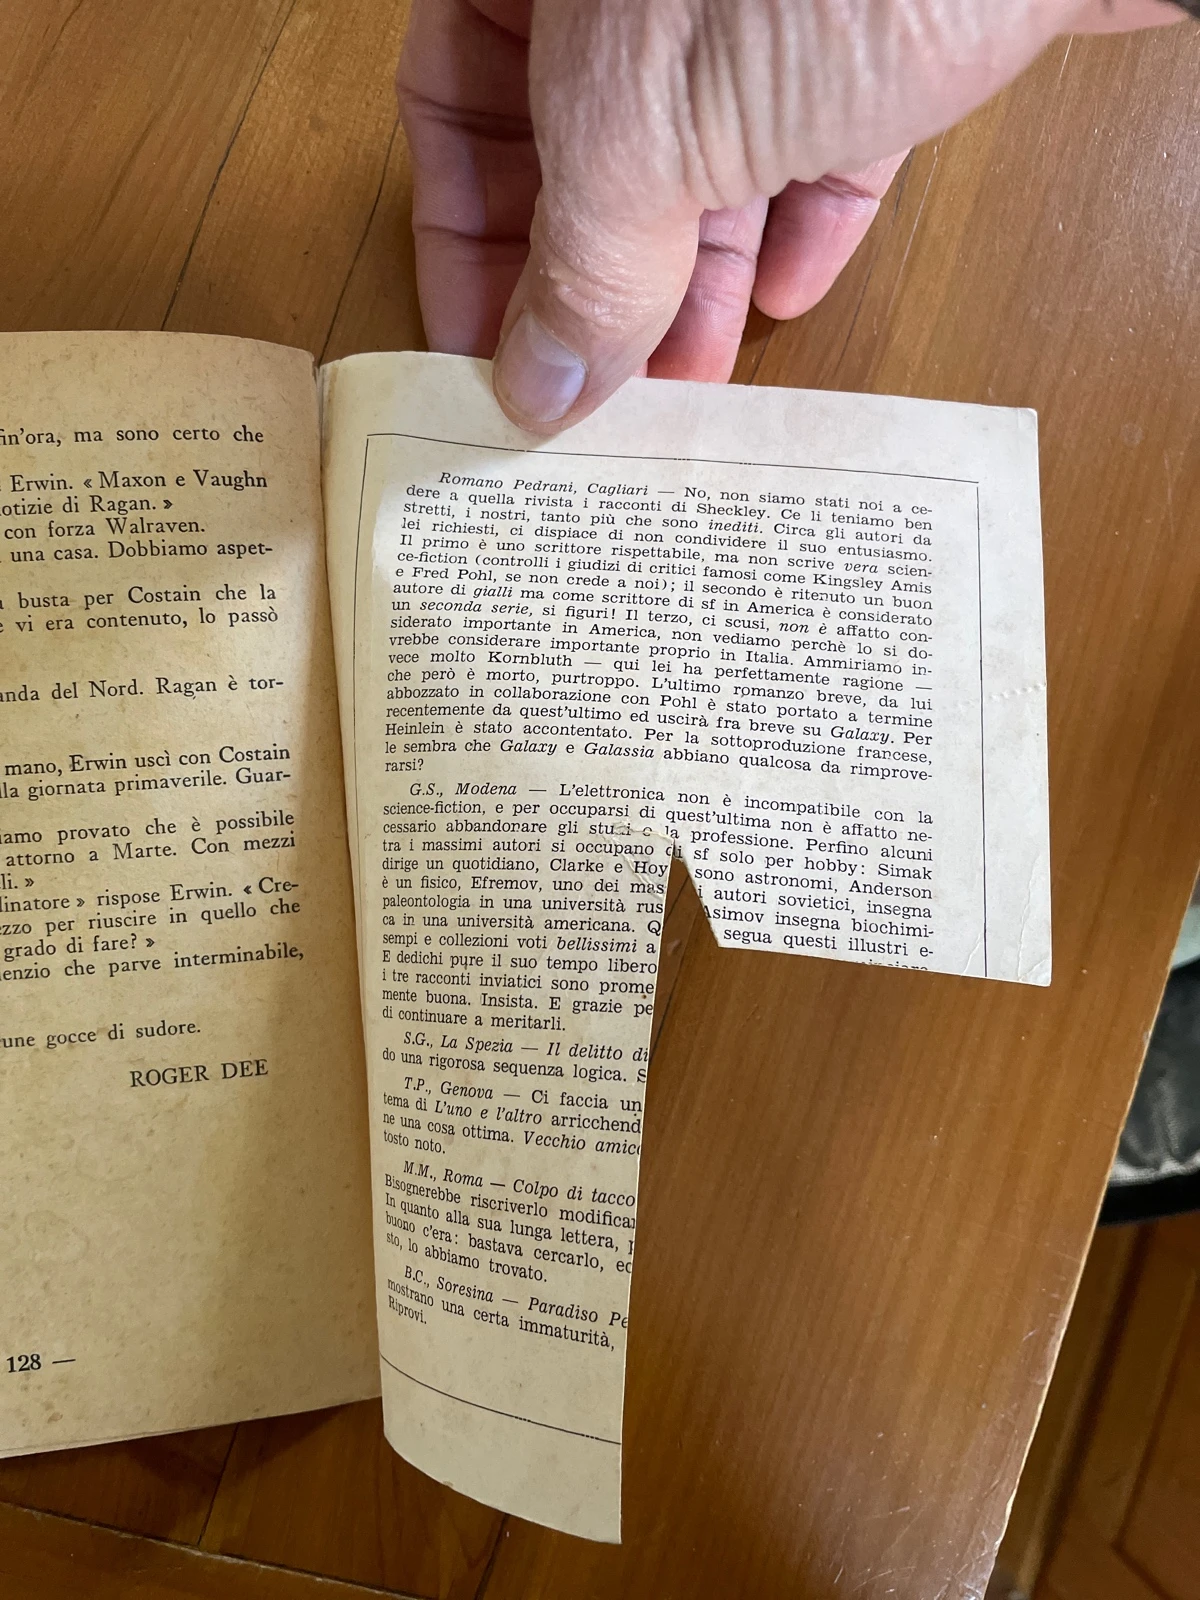 fin'ora, ma sono certo che
Erwin. « Maxon e Vaughn
otizie di Ragan. »
con forza Walraven.
una casa. Dobbiamo aspet-
busta per Costain che la
vi era contenuto, lo passò
anda del Nord. Ragan è tor-
mano, Erwin uscì con Costain
lla giornata primaverile. Guar-
iamo provato che è possibile
attorno a Marte. Con mezzi
li. »
linatore » rispose Erwin. « Cre-
zzo per riuscire in quello che
grado di fare? »
lenzio che parve interminabile,
une gocce di sudore.
ROGER DEE
128 —
Romano Pedrani, Cagliari — No, non siamo stati noi a ce-
dere a quella rivista i racconti di Sheckley. Ce li teniamo ben
stretti, i nostri, tanto più che sono inediti. Circa gli autori da
lei richiesti, ci dispiace di non condividere il suo entusiasmo.
Il primo è uno scrittore rispettabile, ma non scrive vera scien-
ce-fiction (controlli i giudizi di critici famosi come Kingsley Amis
e Fred Pohl, se non crede a noi); il secondo è ritenuto un buon
autore di gialli ma come scrittore di sf in America è considerato
un seconda serie, si figuri! Il terzo, ci scusi, non è affatto con-
siderato importante in America, non vediamo perchè lo si do-
vrebbe considerare importante proprio in Italia. Ammiriamo in-
vece molto Kornbluth — qui lei ha perfettamente ragione —
che però è morto, purtroppo. L'ultimo romanzo breve, da lui
abbozzato in collaborazione con Pohl è stato portato a termine
recentemente da quest'ultimo ed uscirà fra breve su Galaxy. Per
Heinlein è stato accontentato. Per la sottoproduzione francese,
le sembra che Galaxy e Galassia abbiano qualcosa da rimprove-
rarsi?
G.S., Modena — L'elettronica non è incompatibile con la
science-fiction, e per occuparsi di quest'ultima non è affatto ne-
cessario abbandonare gli studi e la professione. Perfino alcuni
tra i massimi autori si occupano di sf solo per hobby: Simak
dirige un quotidiano, Clarke e Hoy sono astronomi, Anderson
è un fisico, Efremov, uno dei mas i autori sovietici, insegna
paleontologia in una università rus Asimov insegna biochimi-
ca in una università americana. Q segua questi illustri e-
sempi e collezioni voti bellissimi a
E dedichi pure il suo tempo libero
i tre racconti inviatici sono prome
mente buona. Insista. E grazie pe
di continuare a meritarli.
S.G., La Spezia — Il delitto di
do una rigorosa sequenza logica. S
T.P., Genova — Ci faccia un
tema di L'uno e l'altro arricchend
ne una cosa ottima. Vecchio amico
tosto noto.
M.M., Roma — Colpo di tacco
Bisognerebbe riscriverlo modifican
In quanto alla sua lunga lettera, p
buono c'era: bastava cercarlo, ec
sto, lo abbiamo trovato.
B.C., Soresina — Paradiso Pe
mostrano una certa immaturità,
Riprovi.